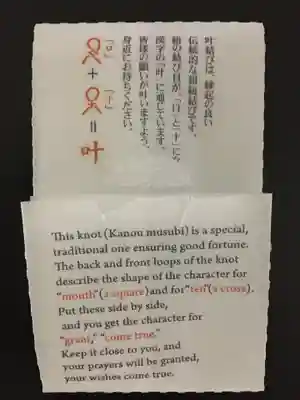 叶結びは、縁起の良い
伝統的な願組結びです。
紐の結び目が、「口」と「十」になり
漢字の「叶」に通じています。
皆様の願いが叶いますよう、
身近にお持ちください。
「口」
「十」
+
=
叶
This knot (Kanou musubi) is a special,
traditional one ensuring good fortune.
The back and front loops of the knot
describe the shape of the character for
"mouth"(a square) and for "ten"(a cross).
Put these side by side,
and you get the character for
"grant," "come true."
Keep it close to you, and
your prayers will be granted,
your wishes come true.